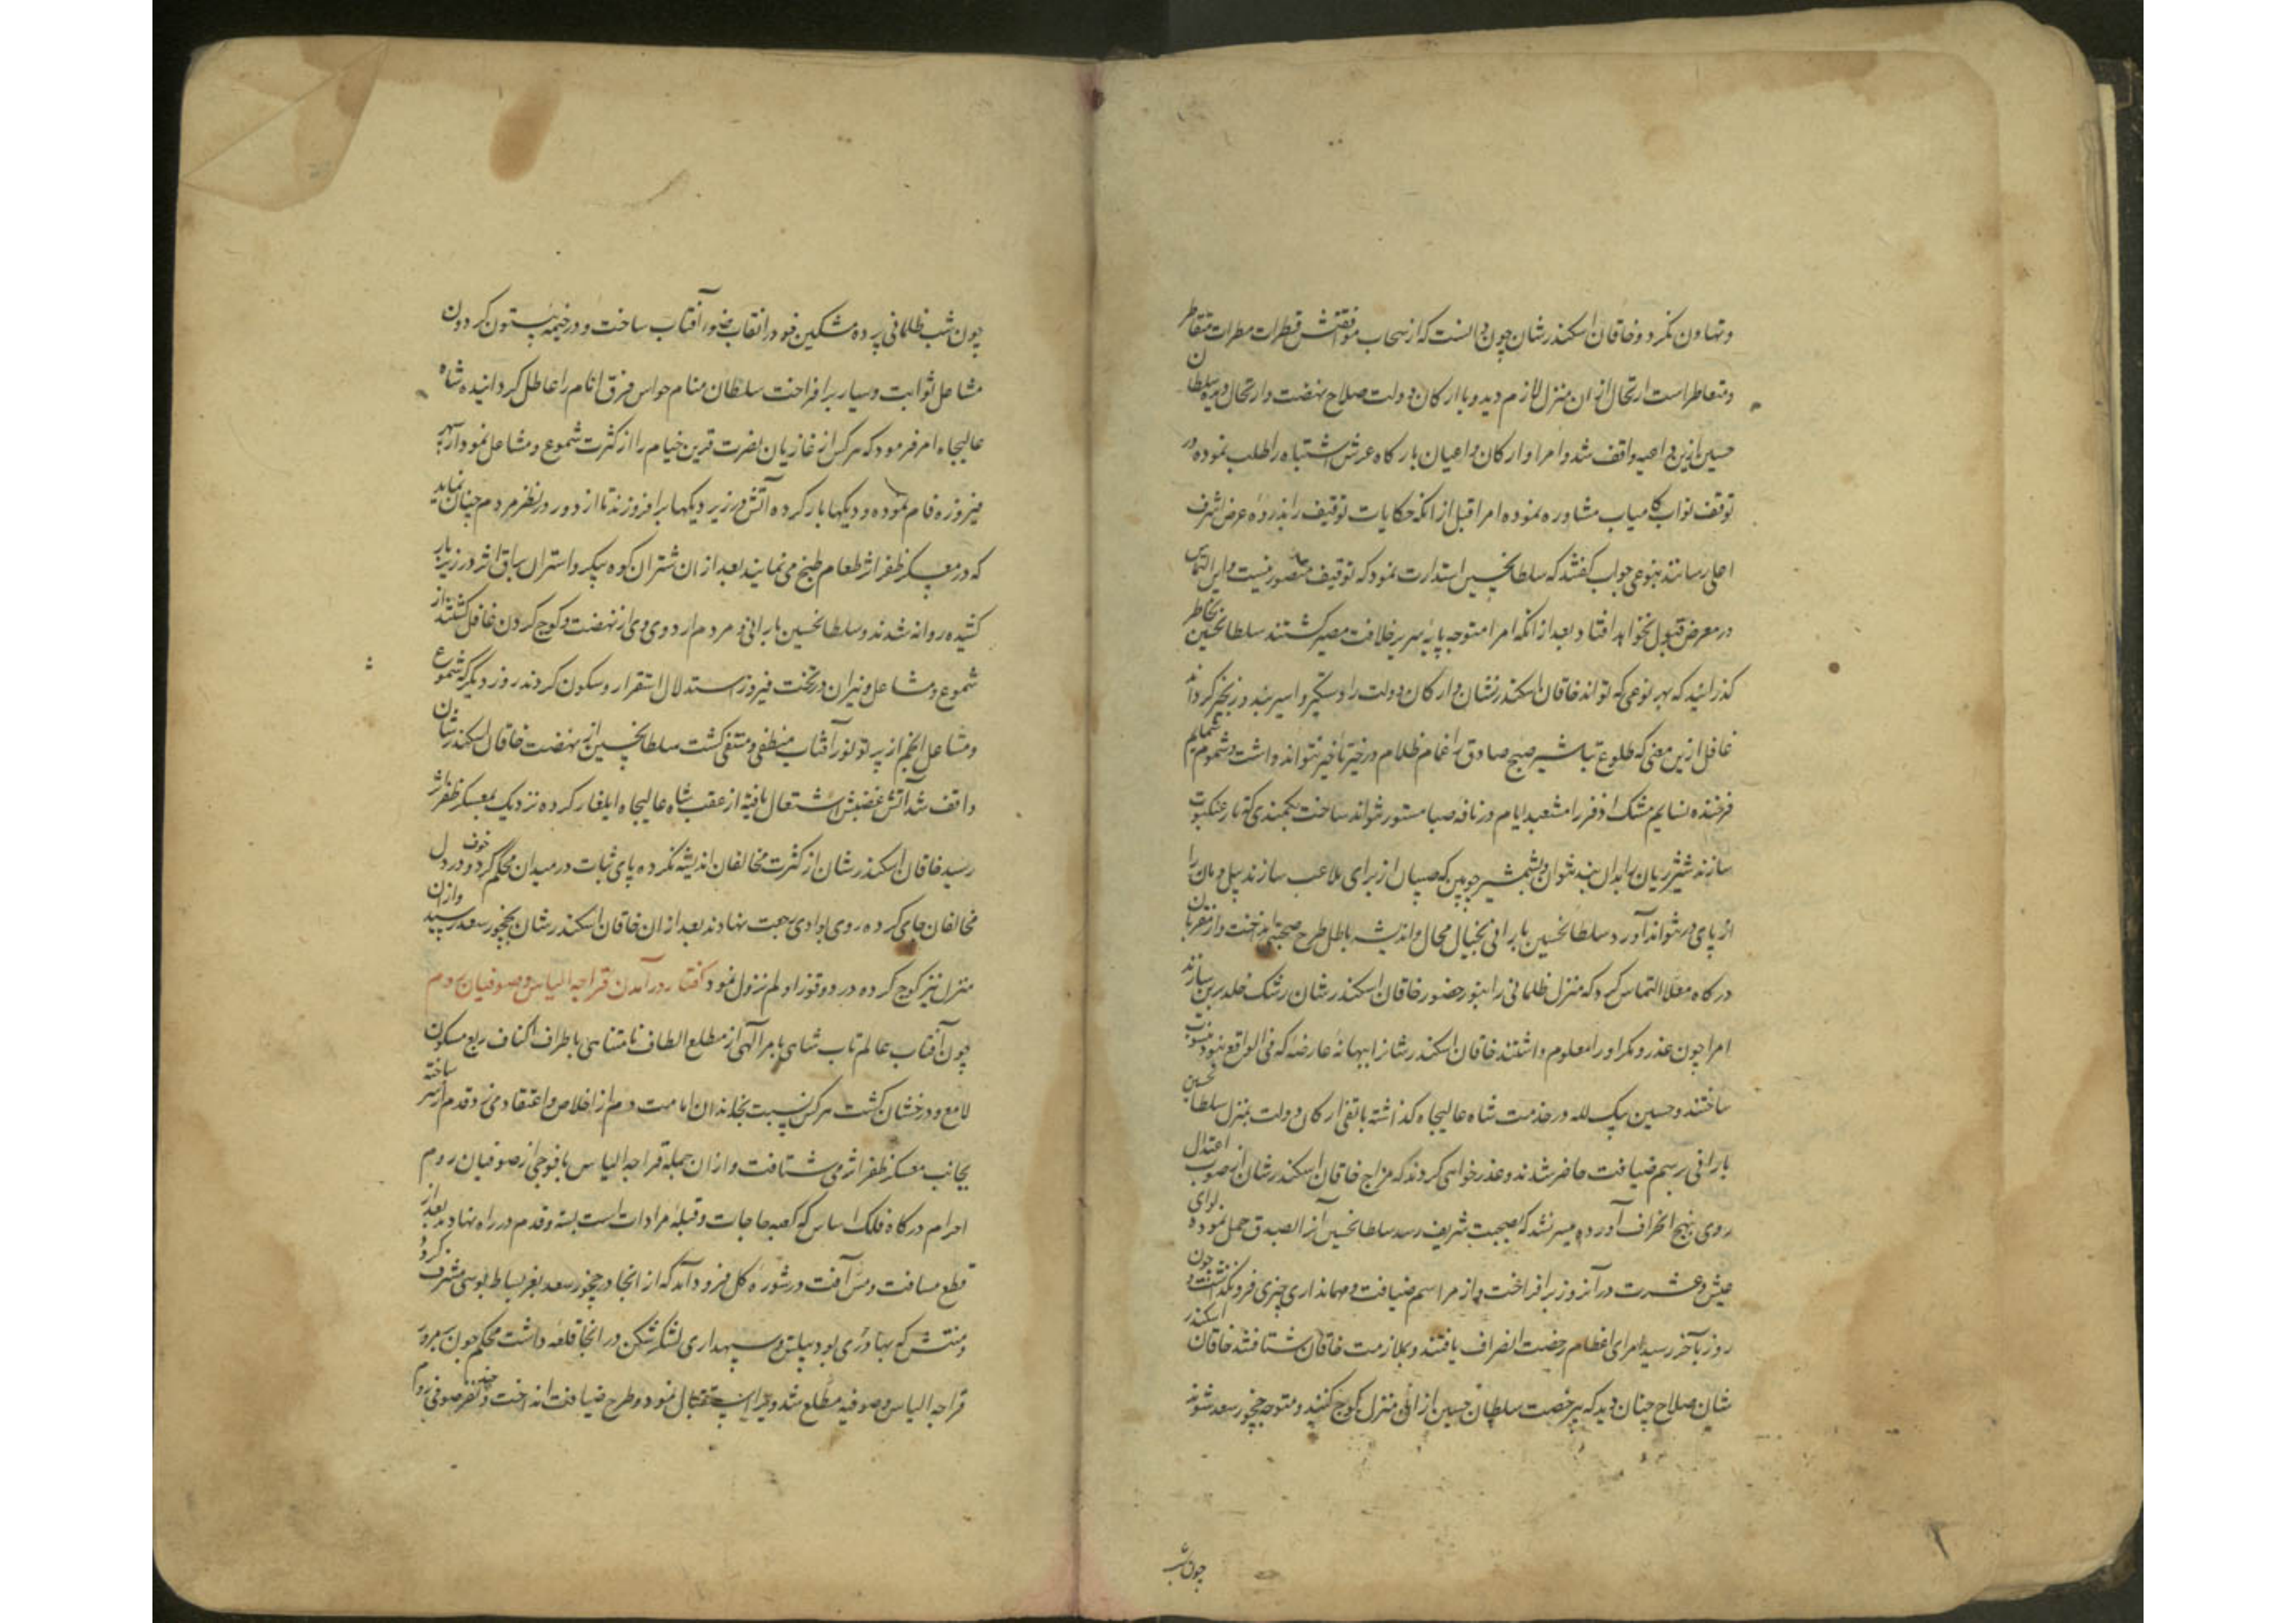 و تهاون نکرد و خاقان اسکندرشان چون دانست که از سحاب موافقتش قطرات مطرات متقاطر
و متعاطر است ارتحال از ان منزل لازم دید و با ارکان دولت صلاح نهضت و ارتحال دیده سلطان
حسین ازین داعیه واقف شد و امرا و ارکان و اعیان بارکاه عرش اشتباه را طلب نموده در
توقف نواب کامیاب مشاوره نموده امرا قبل از انکه حکایات توقیف را بذروه عرض اشرف
اعلی رسانند بنوعی جواب کفتند که سلطانحسین استدارت نمود که توقیف متصور نیست و این التماس
در معرض قبول نخواهد افتاد بعد از انکه امرا متوجه پایه سریر خلافت مصیر کشتند سلطانحسین بخاطر
کذرانید که بهر نوعی که تواند خاقان اسکندرنشان و ارکان دولت را دستکیر و اسیر بند و زنجیر کرداند
غافل ازین معنی که طلوع تباشیر صبح صادق را غمام ظلام در حیز تاخیر نتواند داشت و شموم شمایم
فرخنده نسایم مشک اذفر را مشعبد ایام در نافه صبا مستور نتواند ساخت بکمندی که تار عنکبوت
سازند شیر ژیان را بدان بند نتوان و بشمشیر چوبین که صبیان از برای ملاعب سازند پیل دمان را
از پای در نتواند آورد سلطانحسین بارانی بخیال محال و اندیشه باطل طرح صحبتی انداخت و از مقربان
درکاه معلا التماس کرد که منزل ظلمانی را بنور حضور خاقان اسکندرشان رشک خلد برین سازند
امرا چون عذر و مکر او را معلوم داشتند خاقان اسکندرشانرا ببهانه عارضه که فی الواقع نبود منسوب
ساختند و حسین بیک لله در خدمت شاه عالیجاه کذاشته باتفاق ارکان دولت بمنزل سلطانحسین
بارانی برسم ضیافت حاضر شدند و عذر خواهی کردند که مزاج خاقان اسکندرشان از صوب اعتدال
روی بنهج انحراف آورده میسر نشد که بصحبت شریف رسد سلطانحسین آنرا الصدق حمل نموده لوای
عیش و عشرت در آنروز برافراخت و از مراسم ضیافت و مهمانداری چیزی فرو نکذاشت و چون
روز بآخر رسید امرای عظام رخصت انصراف یافتند و بملازمت خاقان شتافتند خاقان اسکندر
شان صلاح چنان دید که بی رخصت سلطان حسین از ان منزل کوچ کنند و متوجه چخور سعد شوند
چون شب
چون شب ظلمانی پرده مشکین خود را نقاب حضور آفتاب ساخت و در خیمه بیستون کردون
مشاعل ثوابت و سیار برافراخت سلطان منام حواس فرق انام را عاطل کردانیده شاه
عالیجاه امر فرمود که هر کس از غازیان نصرت قرین خیام را از کثرت شموع و مشاعل نمودار سپهر
فیروزه فام نموده و دیکها بار کرده آتش در زیر دیکها برافروزند تا از دور در نظر مردم چنان نماید
که در معسکر ظفر اثر طعام طبخ می نمایند بعد از ان شتران کوه پیکر و استران براق اثر در زیر بار
کشیده روانه شدند و سلطانحسین بارانی و مردم اردوی وی از نهضت و کوچ کردن غافل کشتند از
شموع و مشاعل و نیران در تخت فیروز استدلال استقرار و سکون کردند روز دیکر که شموع
و مشاعل انجم از پرتو نور آفتاب منطفی و منتفی کشت سلطانحسین از نهضت خاقان اسکندرشان
واقف شد آتش غضبش اشتعال یافته از عقب شاه عالیجاه ایلغار کرده نزدیک بمعسکر ظفر اثر
رسید خاقان اسکندرشان از کثرت مخالفان اندیشه نکرده پای ثبات در میدان محکم کرد و خوف در دل
مخالفان جای کرده روی بوادی رجعت نهادند بعد از ان خاقان اسکندرشان بچخور سعد رسید و از ان
منزل نیز کوچ کرده در دوقوز اولم نزول نمود کفتار در آمدن قراجه الیاس و صوفیان روم
چون آفتاب عالم تاب شاهی بامر آلهی از مطلع الطاف نامتناهی باطراف اکناف ربع مسکون
لامع و درخشان کشت هر کس نسبت بخاندان امامت دم از اخلاص و اعتقاد می زد قدم از سر ساخته
بجانب معسکر ظفر اثر می شتافت و از ان جمله قراجه الیاس با فوجی از صوفیان روم
احرام درکاه فلک اساس که کعبه حاجات و قبله مرادات است بسته و قدم در راه نهادند بعد از
قطع مسافت و مس آفت در شوره کل فرود آمد که از انجا در چخور سعد بعز بساط بوسی مشرف کردد
و منتش که بهادری بود پیلتن و سپهداری لشکرشکن در انجا قلعه داشت محکم چون بر مرور
قراجه الیاس و صوفیه مطلع شد ویرا استقبال نمود و طرح ضیافت انداخت و چند نفر صوفی روم